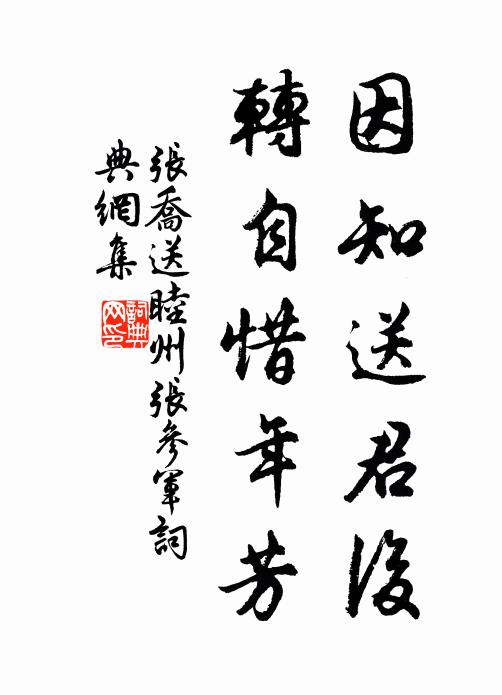 因知送君後
轉自惜年芳
張喬送睦州張參軍詞
典網集
詞典
網印